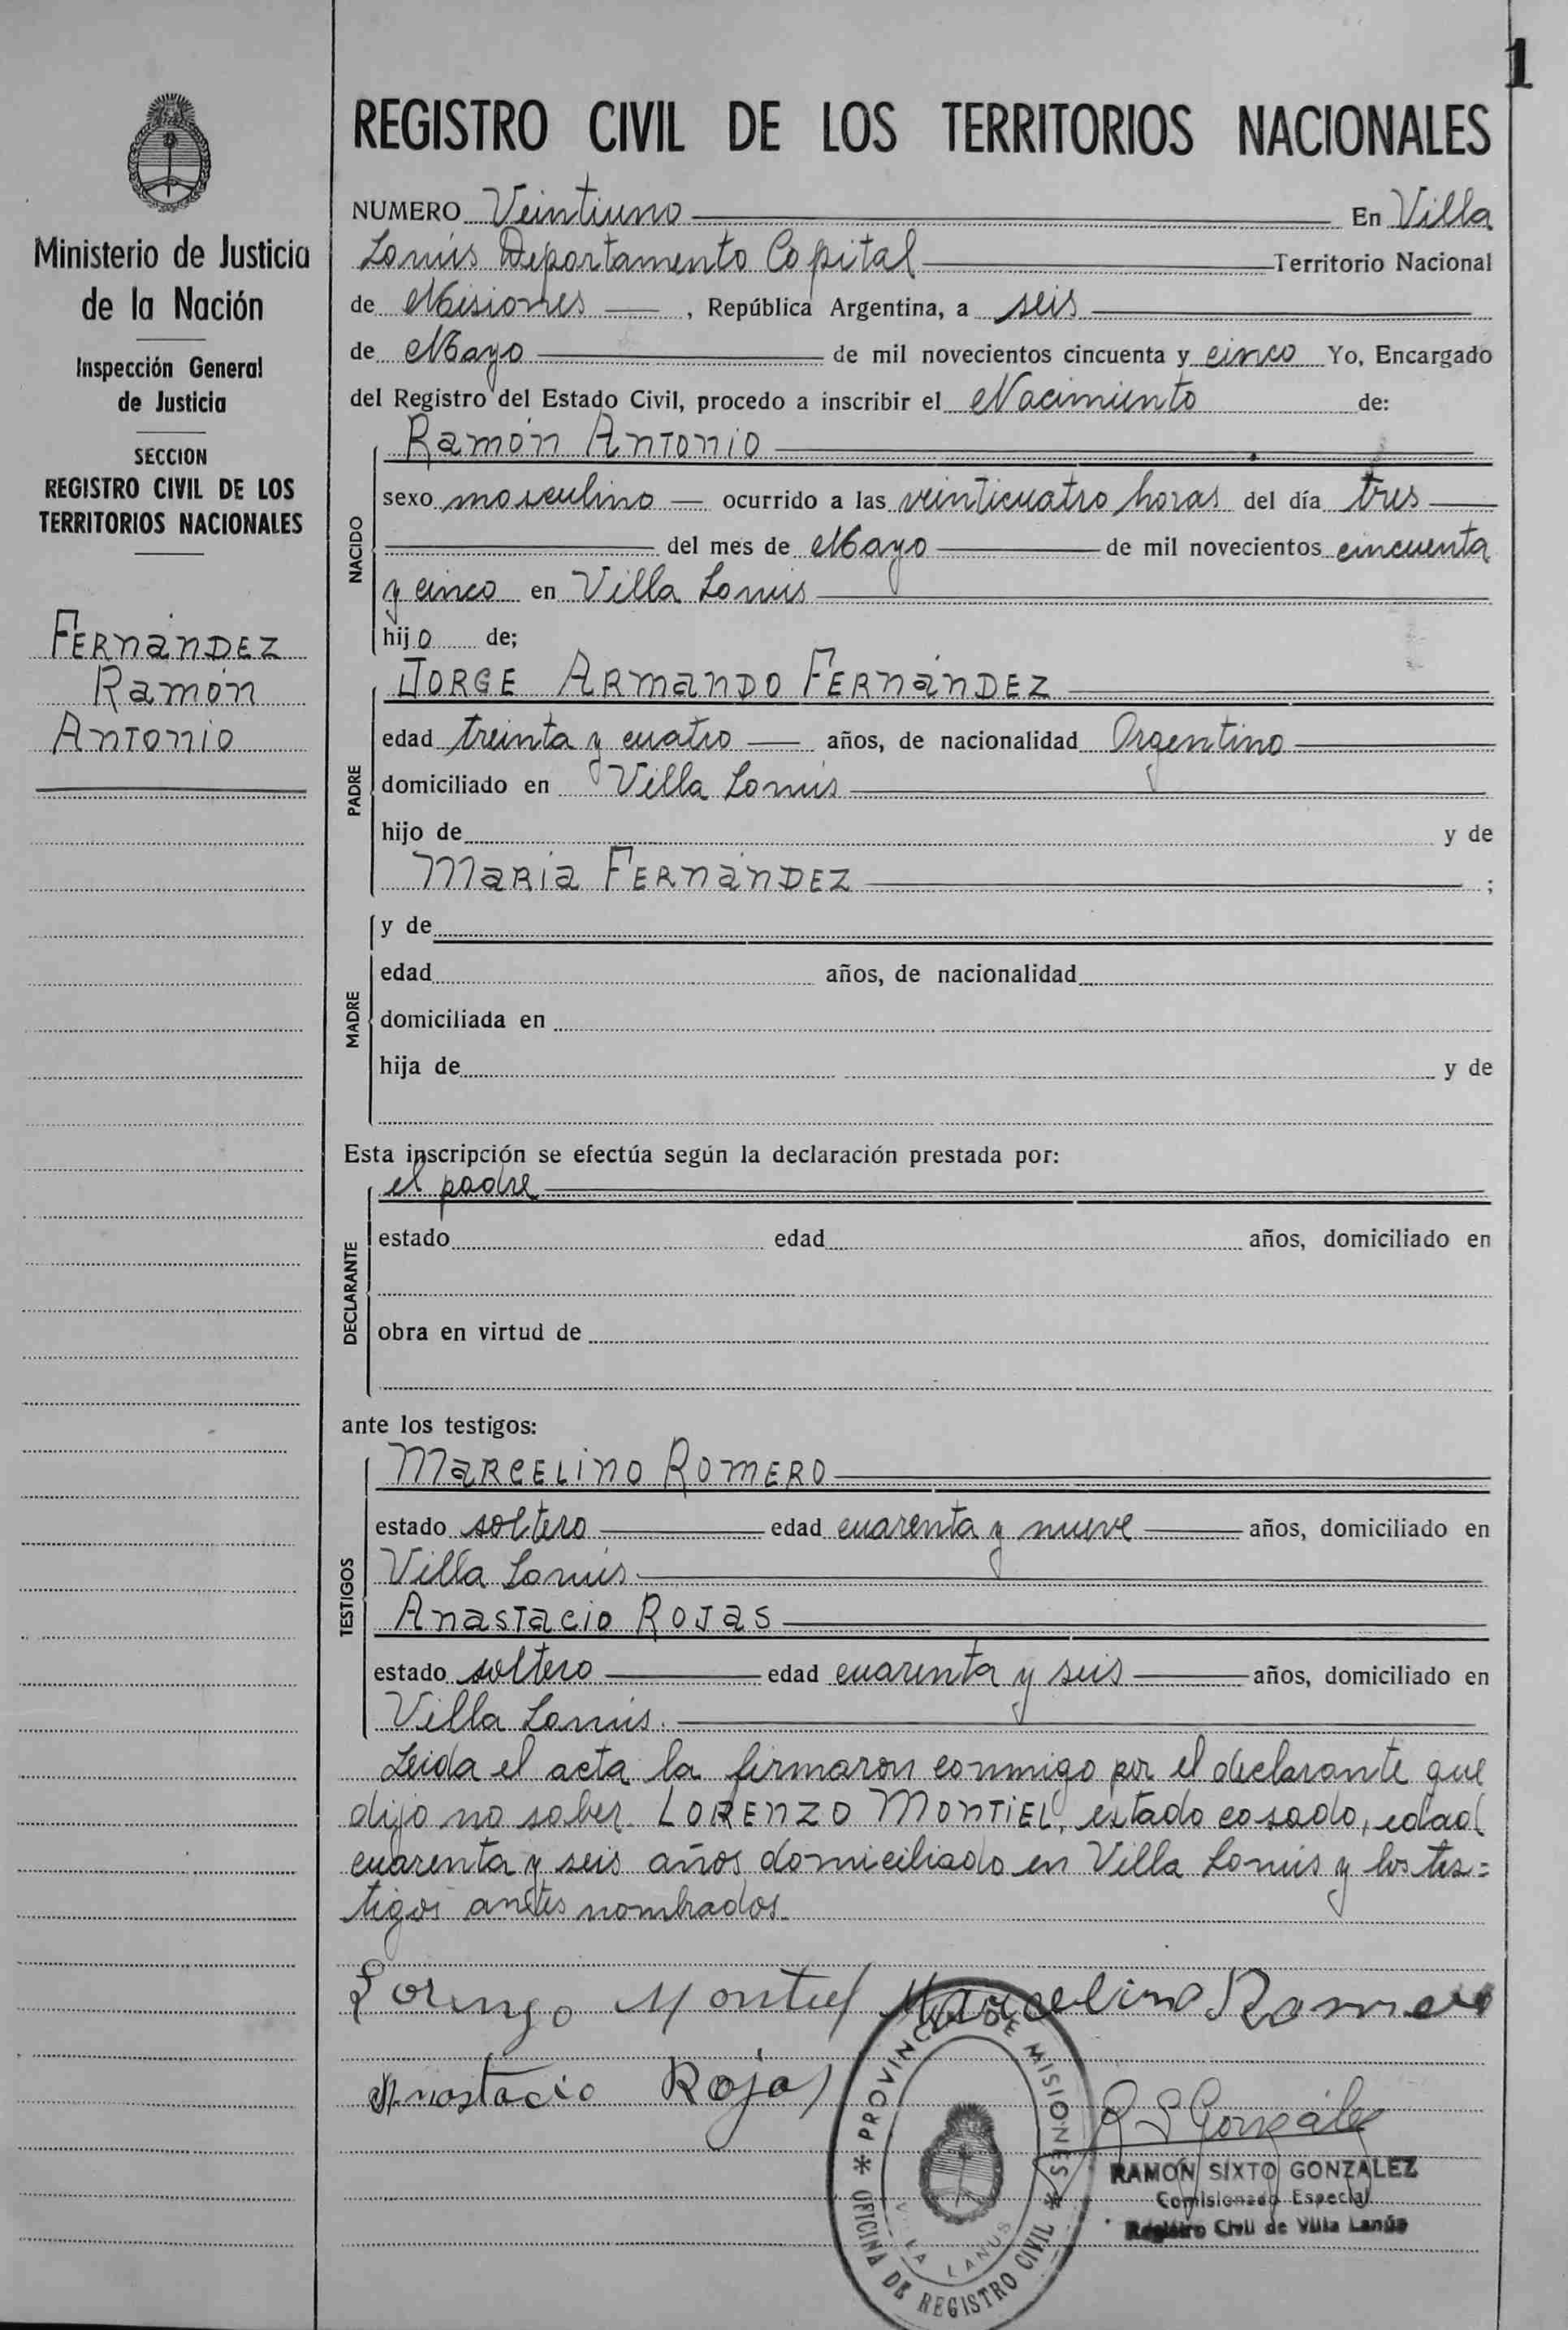 1
Ministerio de Justicia
de la Nación
Inspección General
de Justicia
SECCION
REGISTRO CIVIL DE LOS
TERRITORIOS NACIONALES
FERNÁNDEZ
RAMÓN
ANTONIO
REGISTRO CIVIL DE LOS TERRITORIOS NACIONALES
NUMERO Veintiuno En Villa
Lanús Departamento Capital Territorio Nacional
de Misiones , República Argentina, a seis
de Mayo de mil novecientos cincuenta y cinco Yo, Encargado
del Registro del Estado Civil, procedo a inscribir el Nacimiento de:
NACIDO
RAMÓN ANTONIO
sexo masculino ocurrido a las veinticuatro horas del día tres
del mes de Mayo de mil novecientos cincuenta
y cinco en Villa Lanús
hijo de;
PADRE
JORGE ARMANDO FERNÁNDEZ
edad treinta y cuatro años, de nacionalidad Argentino
domiciliado en Villa Lanús
hijo de y de
MARÍA FERNÁNDEZ ;
MADRE
y de
edad años, de nacionalidad
domiciliada en
hija de y de
Esta inscripción se efectúa según la declaración prestada por:
DECLARANTE
el padre
estado edad años, domiciliado en
obra en virtud de
ante los testigos:
TESTIGOS
MARCELINO ROMERO
estado soltero edad cuarenta y nueve años, domiciliado en
Villa Lanús
ANASTACIO ROJAS
estado soltero edad cuarenta y seis años, domiciliado en
Villa Lanús.
Leida el acta la firmaron conmigo por el declarante que
dijo no saber LORENZO MONTIEL, estado casado, edad
cuarenta y seis años domiciliado en Villa Lanús y los tes=
tigos antes nombrados.
Lorenzo Montiel Marcelino Romero
Anastacio Rojas
R S González
PROVINCIA DE MISIONES
OFICINA DE REGISTRO CIVIL
VILLA LANUS
RAMON SIXTO GONZALEZ
Comisionado Especial
Registro Civil de Villa Lanús